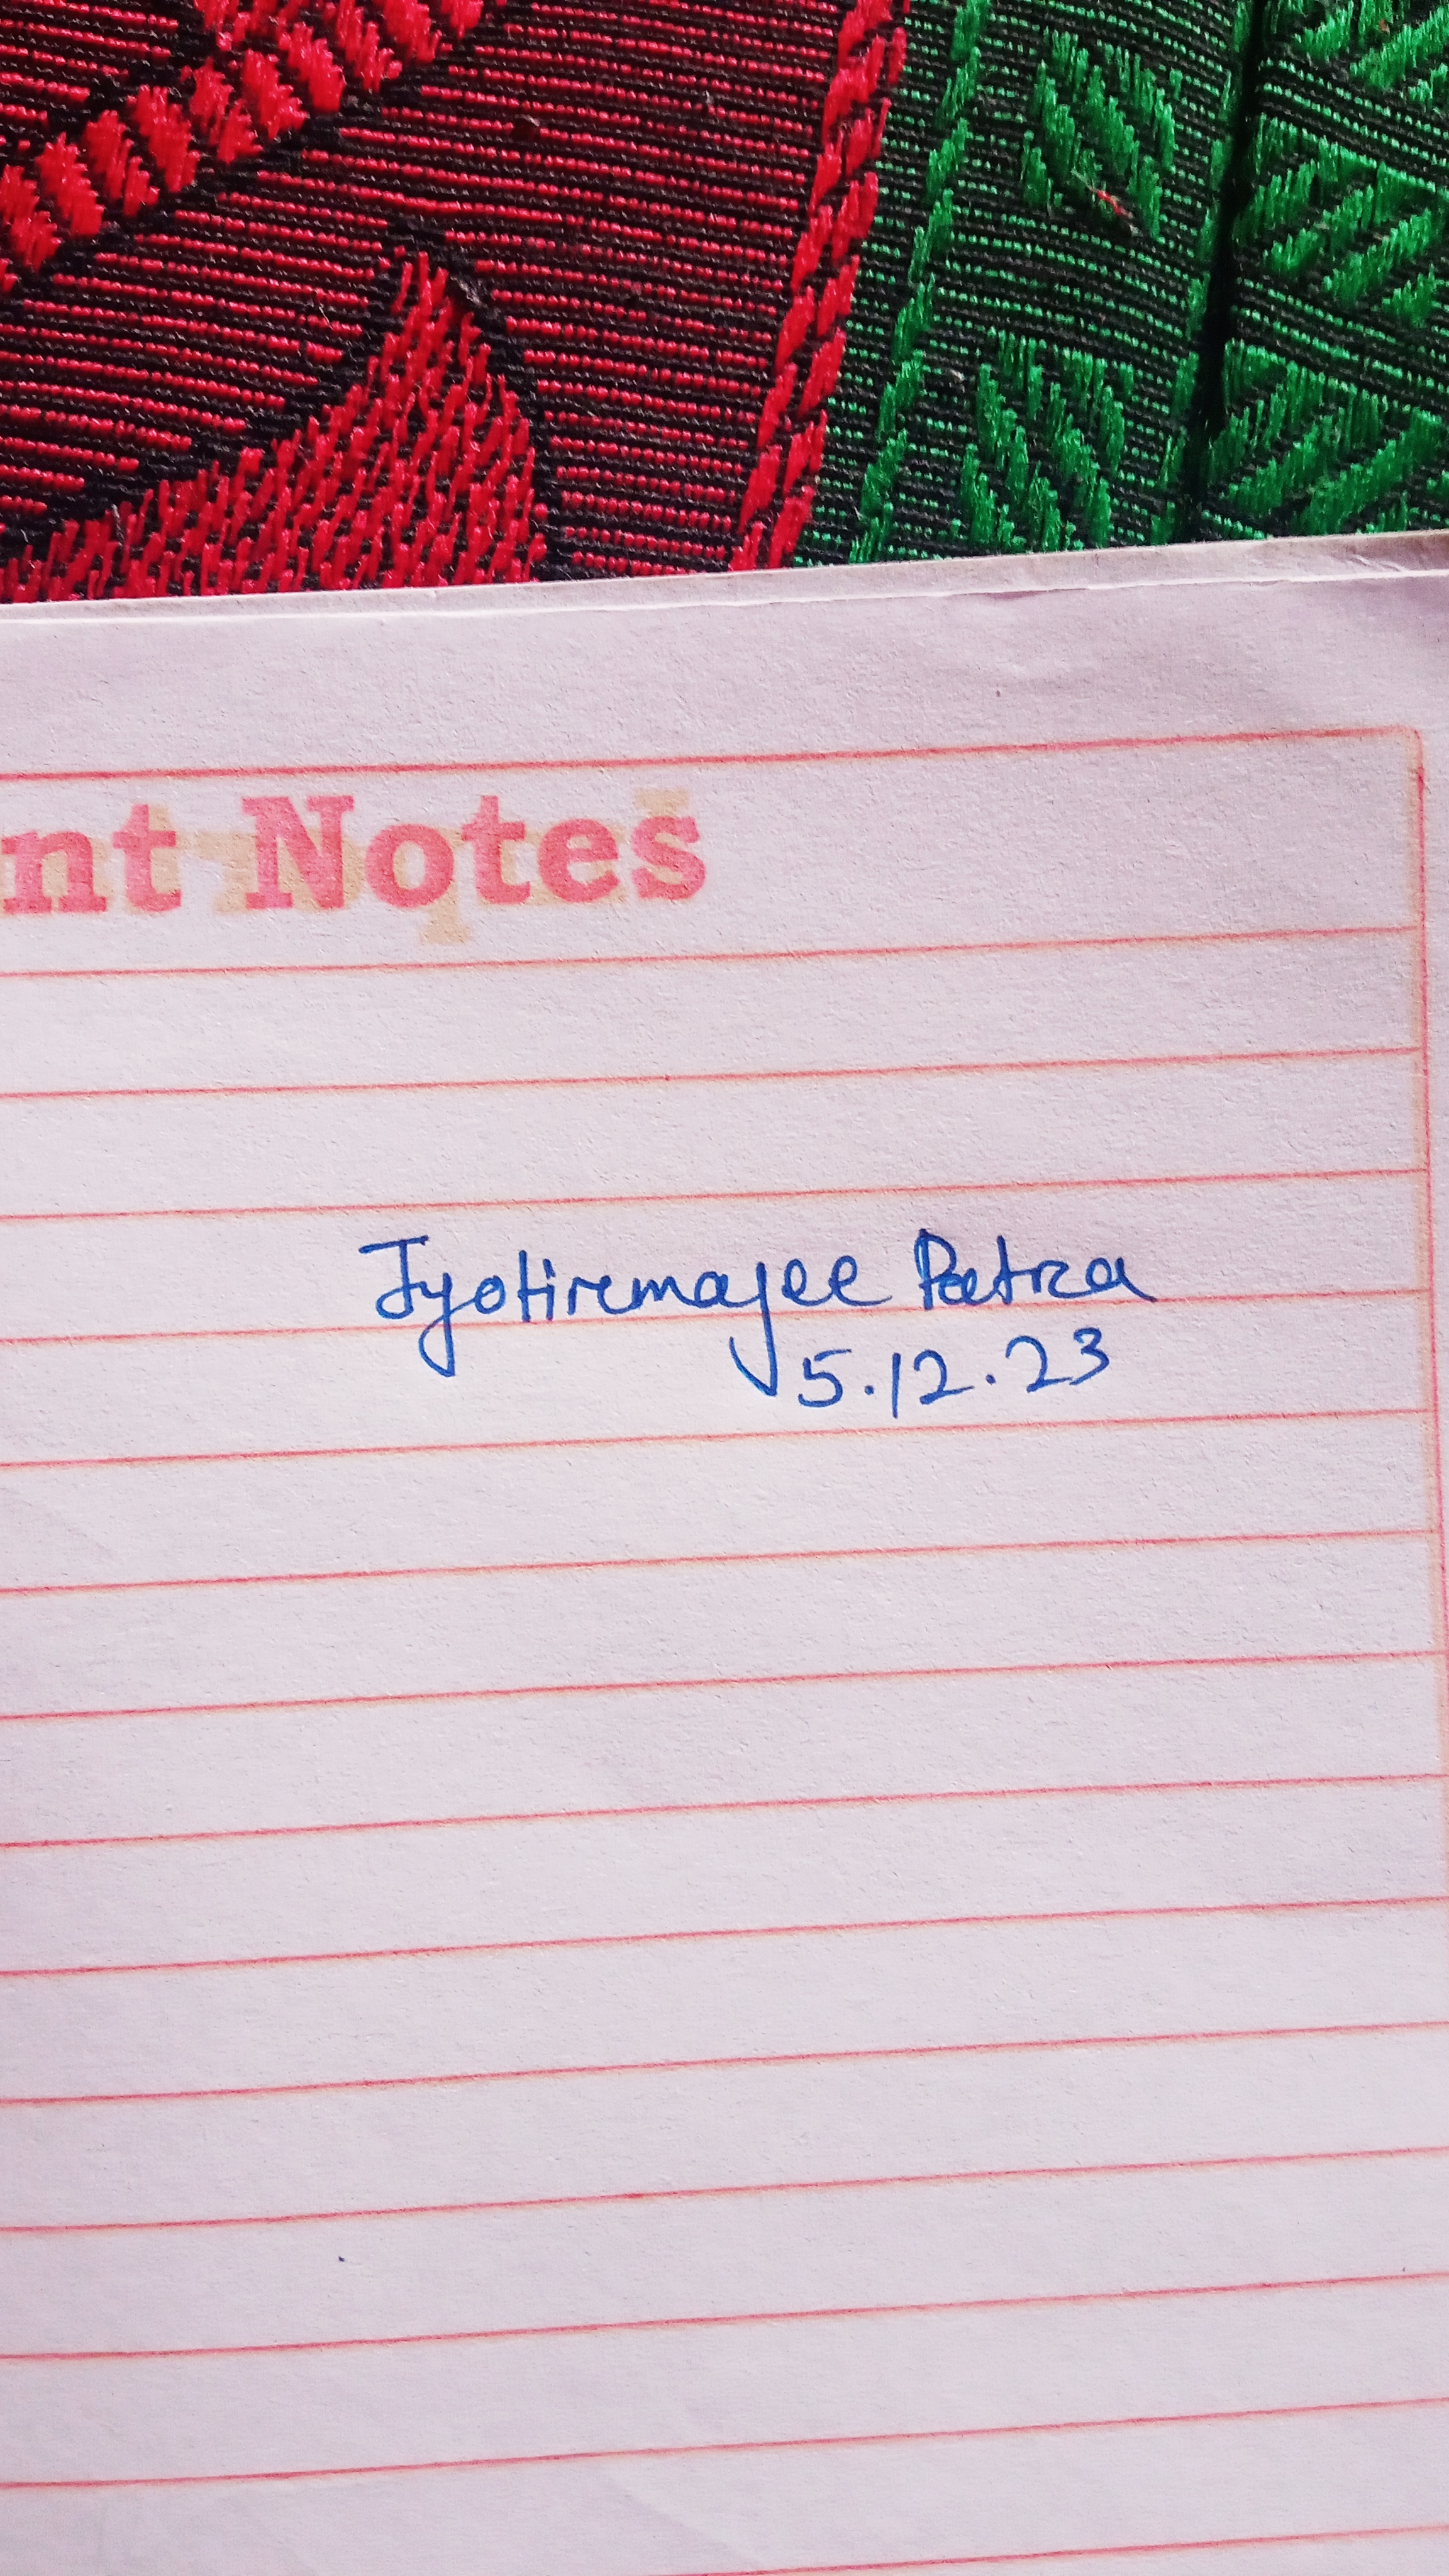 nt Notes
Jyotirmayee Patra
5.12.23